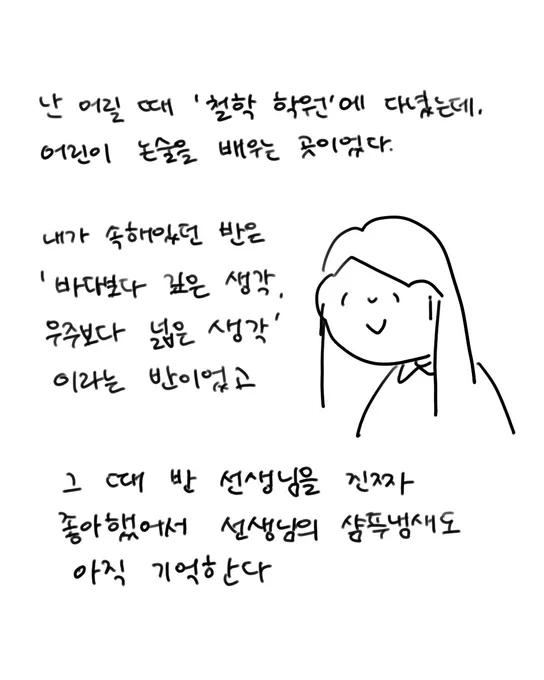 난 어릴 때 '철학 학원'에 다녔는데,
어린이 논술을 배우는 곳이었다.
내가 속해있던 반은
'바다보다 깊은 생각,
우주보다 넓은 생각'
이라는 반이었고
그 때 반 선생님을 진짜
좋아했어서 선생님의 샴푸냄새도
아직 기억한다